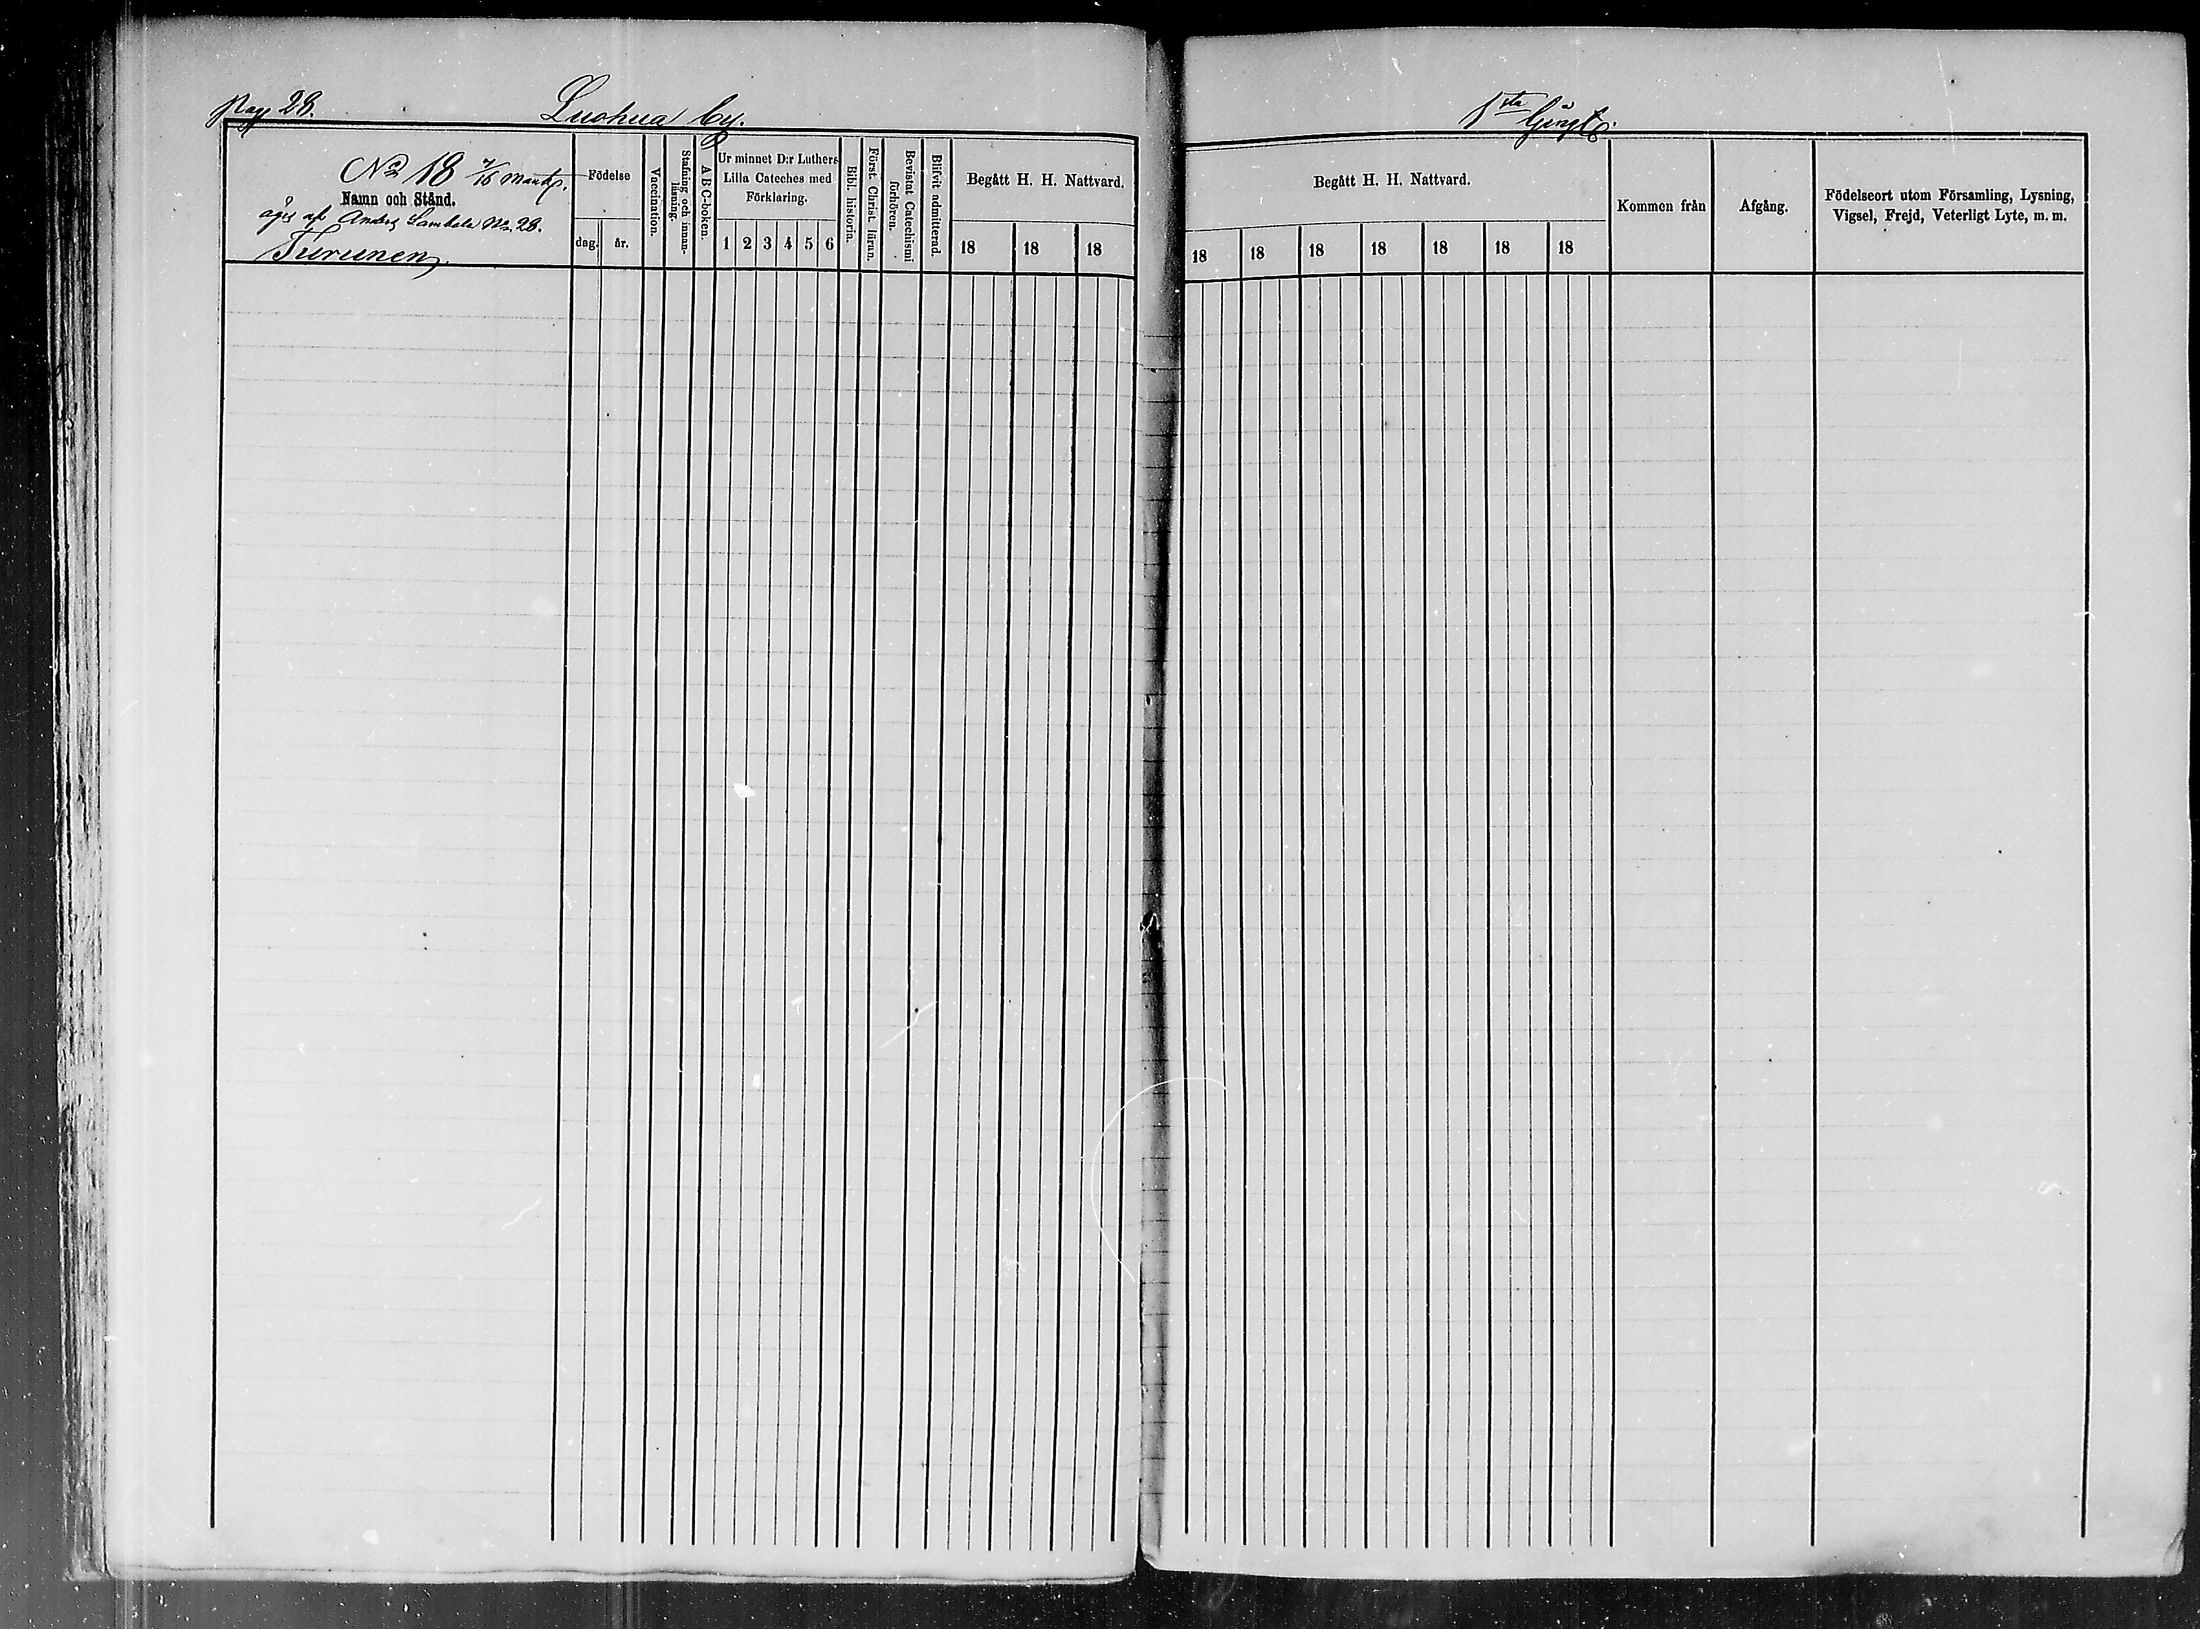 Pag 28.
Luohua by.
1sta
No 18 7/16 Mant.
Namn och Stånd.
äges af Anders Lambola No 28.
Turunen,
Födelse
dag. år.
Vaccination.
Stafning och innan-
läsning.
A B C-boken.
Ur minnet D:r Luthers
Lilla Cateches med
Förklaring.
1 2 3 4 5 6
Bibl. historia.
Först. Christ. läran.
Bevistat Catechismi
förhören.
Blifvit admitterad.
Begått H. H. Nattvard.
18 18 18
Begått H. H. Nattvard.
18 18 18 18 18 18 18
Kommen från
Afgång.
Födelseort utom Församling, Lysning,
Vigsel, Frejd, Veterligt Lyte, m. m.